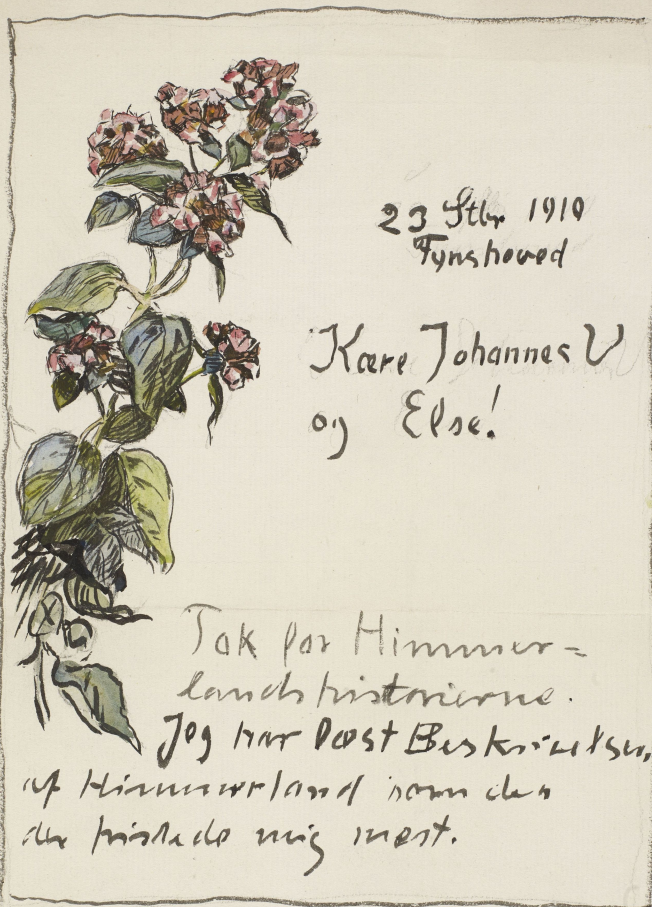 23 Stbr 1910
Fynshoved
Kære Johannes V
og Else!
Tak for Himmer=
landshistorierne.
Jeg har læst Beskrivelsen,
af Himmerland som den
der fristede mig mest.